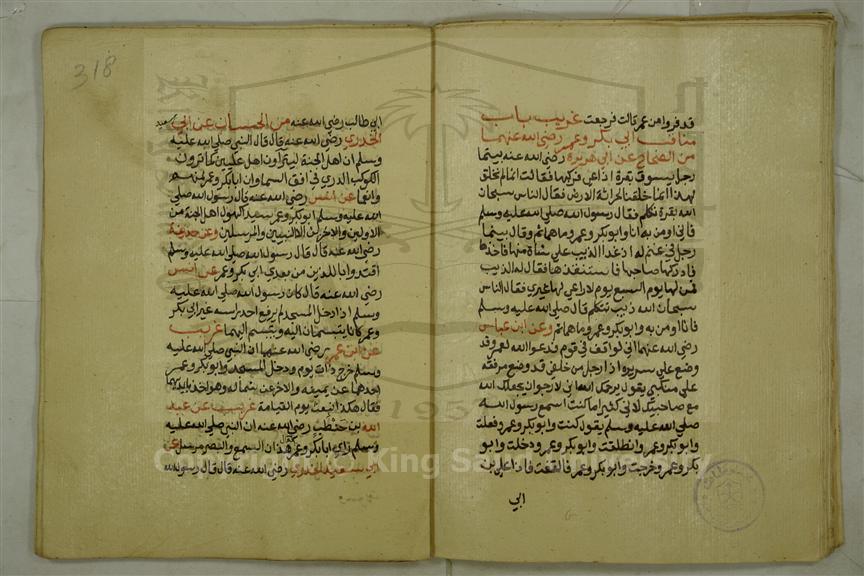 قد فروا من عمر قالت فرجعت غريب باب
مناقب ابي بكر وعمر رضي الله عنهما
من الصحاح عن ابي هريرة رضي الله عنه بينما
رجل يسوق بقرة اذ اعي فركبها فقالت انا لم نخلق
لهذا انما خلقنا لحراثة الارض فقال الناس سبحان
الله بقرة تكلم فقال رسول الله صلى الله عليه وسلم
فاني اومن به انا وابو بكر وعمر وما هما ثم وقال بينما
رجل في غنم له اذ غدا الذيب على شاة منها فاخذها
فادركها صاحبها فاستنقذها فقال له الذيب
فمن لها يوم السبع يوم لا راعي لها غيري فقال الناس
سبحان الله ذيب يتكلم قال صلى الله عليه وسلم
فانا اومن به وابو بكر وعمر وما هما ثم وعن ابن عباس
رضي الله عنهما اني لواقف في قوم فدعوا الله لعمر وقد
وضع على سريره اذا رجل من خلفي قد وضع مرفقه
على منكبي يقول يرحمك الله اني لارجو ان يجعلك الله
مع صاحبيك لاني كثيرا ما كنت اسمع رسول الله
صلى الله عليه وسلم يقول كنت وابو بكر وعمر وفعلت
وابو بكر وعمر وانطلقت وابو بكر وعمر ودخلت وابو
بكر وعمر وخرجت وابو بكر وعمر فالتفت فاذا علي بن
ابي
318
ابي طالب رضي الله عنه من الحسان عن ابي سعيد
الخدري رضي الله عنه قال قال النبي صلى الله عليه
وسلم ان اهل الجنة ليتراون اهل عليين كما ترون
الكوكب الدري في افق السما وان ابا بكر وعمر لمنهم
وانعما عن انس رضي الله عنه قال قال رسول الله صلى
الله عليه وسلم ابو بكر وعمر سيدا كهول اهل الجنة من
الاولين والاخرين الا النبيين والمرسلين وعن حذيفة
رضي الله عنه قال قال رسول الله صلى الله عليه وسلم
اقتدوا بالذين من بعدي ابي بكر وعمر عن انس
رضي الله عنه قال كان رسول الله صلى الله عليه
وسلم اذا دخل المسجد لم يرفع احد راسه غير ابي بكر
وعمر كانا يتبسمان اليه ويتبسم اليهما غريب
عن ابن عمر رضي الله عنهما ان النبي صلى الله عليه
وسلم خرج ذات يوم ودخل المسجد وابو بكر وعمر
احدهما عن يمينه والاخر عن شماله وهو اخذ بايديهما
فقال هكذا نبعث يوم القيامة غريب عن عبد
الله بن حنطب رضي الله عنه ان النبي صلى الله عليه
وسلم راي ابا بكر وعمر فقال هذان السمع والبصر مرسل عن
ابي سعيد الخدري رضي الله عنه قال قال رسول الله